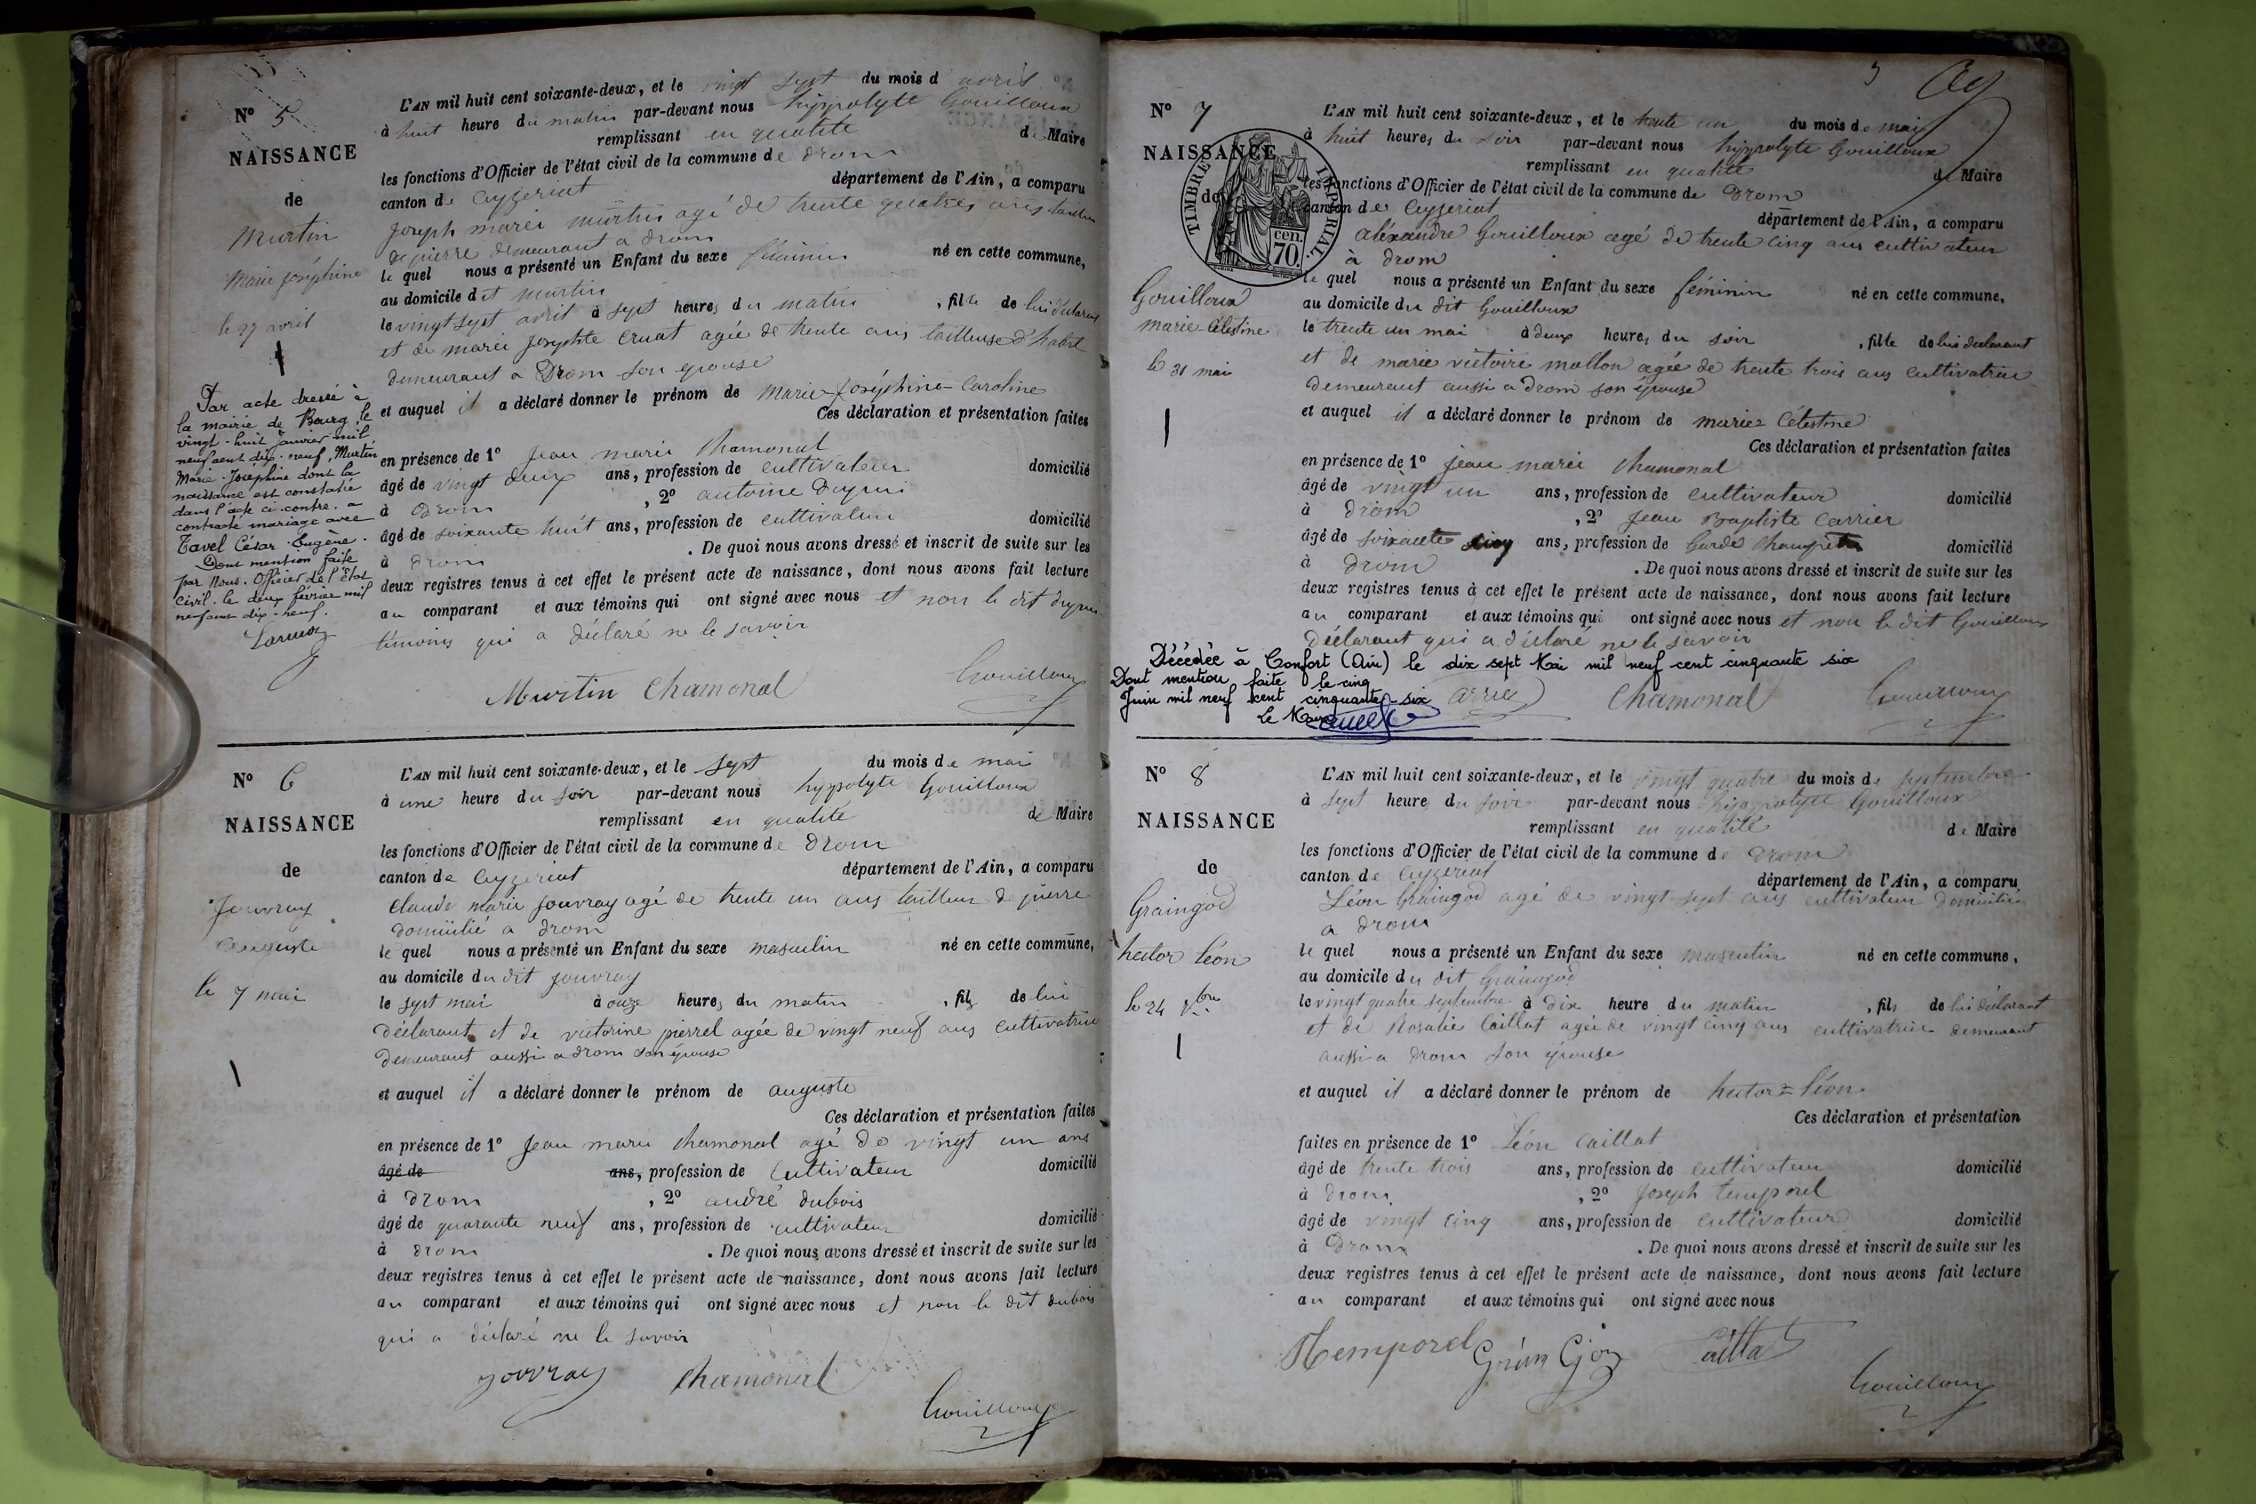 N° 5
NAISSANCE
de
Martin
Marie Joséphine
le 27 avril
Par acte dressé à
la mairie de Bourg, le
vingt-huit Janvier mil
neuf cent dix-neuf, Martin
Marie-Joséphine dont la
naissance est constatée
dans l'acte ci-contre, a
contracté mariage avec
Tavel César-Eugène.
Dont mention faite
par Nous, Officier de l'État
civil, le deux février mil
neuf cent dix-neuf.
L'AN mil huit cent soixante-deux, et le vingt sept du mois d'avril
à huit heure du matin par-devant nous hyppolyte Gouilloux
remplissant en qualité de Maire
les fonctions d'Officier de l'état civil de la commune de Drom
canton de Ceyzeriat département de l'Ain, a comparu
Joseph marie martin agé de trente quatre ans tailleur
de pierre demeurant a drom
le quel nous a présenté un Enfant du sexe féminin né en cette commune,
au domicile dudit martin
le vingt sept avril à sept heures du matin, fille de lui déclarant
et de marie josephte Cruat agée de trente ans tailleuse d'habit
demeurant a Drom son epouse
et auquel il a déclaré donner le prénom de Marie-Joséphine-Caroline
Ces déclaration et présentation faites
en présence de 1° Jean marie Chamonal
âgé de vingt deux ans, profession de cultivateur domicilié
à Drom, 2° antoine Dupui
âgé de soixante huit ans, profession de cultivateur domicilié
à Drom. De quoi nous avons dressé et inscrit de suite sur les
deux registres tenus à cet effet le présent acte de naissance, dont nous avons fait lecture
au comparant et aux témoins qui ont signé avec nous et non le dit dupui
témoins qui a déclaré ne le savoir
Martin Chamonal Gouilloux
N° 6
NAISSANCE
de
Jouvray
Auguste
le 7 mai
L'AN mil huit cent soixante-deux, et le sept du mois de mai
à une heure du soir par-devant nous hyppolyte Gouilloux
remplissant en qualité de Maire
les fonctions d'Officier de l'état civil de la commune de Drom
canton de Ceyzeriat département de l'Ain, a comparu
Claude marie jouvray agé de trente un ans tailleur de pierre
domicilié a drom
le quel nous a présenté un Enfant du sexe masculin né en cette commune,
au domicile du dit jouvray
le sept mai à onze heures du matin, fils de lui
déclarant et de victorine pierrel agée de vingt neuf ans cultivatrice
demeurant aussi a drom son épouse
et auquel il a déclaré donner le prénom de auguste
Ces déclaration et présentation faites
en présence de 1° Jean marie Chamonal agé de vingt un ans
âgé de ans, profession de Cultivateur domicilié
à Drom, 2° andré dubois
âgé de quarante neuf ans, profession de cultivateur domicilié
à drom. De quoi nous avons dressé et inscrit de suite sur les
deux registres tenus à cet effet le présent acte de naissance, dont nous avons fait lecture
au comparant et aux témoins qui ont signé avec nous et non le dit dubois
qui a déclaré ne le savoir
jouvray Chamonal
Gouilloux
N° 7
NAISSANCE
de
TIMBRE IMPERIAL
70 cen.
Gouilloux
marie Célestine
le 31 mai
L'AN mil huit cent soixante-deux, et le trente un du mois de mai
à huit heures du soir par-devant nous hyppolyte Gouilloux
remplissant en qualité de Maire
les fonctions d'Officier de l'état civil de la commune de Drom
canton de Ceyzeriat département de l'Ain, a comparu
aléxandre Gouilloux agé de trente cinq ans cultivateur
a drom
le quel nous a présenté un Enfant du sexe féminin né en cette commune,
au domicile du dit Gouilloux
le trente un mai à deux heures du soir, fille de lui déclarant
et de marie victoire mollon agée de trente trois ans cultivatrice
demeurant aussi a Drom son épouse
et auquel il a déclaré donner le prénom de marie=Célestine
Ces déclaration et présentation faites
en présence de 1° Jean marie Chamonal
âgé de vingt un ans, profession de cultivateur domicilié
à Drom, 2° Jean Baptiste Carrier
âgé de soixante cinq ans, profession de Garde Champetre domicilié
à Drom. De quoi nous avons dressé et inscrit de suite sur les
deux registres tenus à cet effet le présent acte de naissance, dont nous avons fait lecture
au comparant et aux témoins qui ont signé avec nous et non le dit Gouilloux
Déclarant qui a déclaré ne le savoir
Décédée à Confort (Ain) le dix sept Mai mil neuf cent cinquante six
Dont mention faite le cinq
Juin mil neuf cent cinquante-six
Le Maire
Carrier Chamonal Gouilloux
N° 8
NAISSANCE
de
Graingod
hector léon
le 24 7bre
L'AN mil huit cent soixante-deux, et le vingt quatre du mois de septembre
à sept heure du soir par-devant nous hyppolyte Gouilloux
remplissant en qualité de Maire
les fonctions d'Officier de l'état civil de la commune de Drom
canton de Ceyzeriat département de l'Ain, a comparu
Léon Graingod agé de vingt-sept ans cultivateur domicilié
a drom
le quel nous a présenté un Enfant du sexe masculin né en cette commune,
au domicile du dit Graingod
le vingt quatre septembre à dix heure du matin, fils de lui déclarant
et de Rosalie Caillat agée de vingt cinq ans cultivatrice demeurant
aussi a Drom son épouse
et auquel il a déclaré donner le prénom de hector=léon
Ces déclaration et présentation
faites en présence de 1° Léon Caillat
âgé de trente trois ans, profession de cultivateur domicilié
à Drom, 2° Joseph temporel
âgé de vingt cinq ans, profession de cultivateur domicilié
à Drom. De quoi nous avons dressé et inscrit de suite sur les
deux registres tenus à cet effet le présent acte de naissance, dont nous avons fait lecture
au comparant et aux témoins qui ont signé avec nous
temporel Caillat
Gouilloux